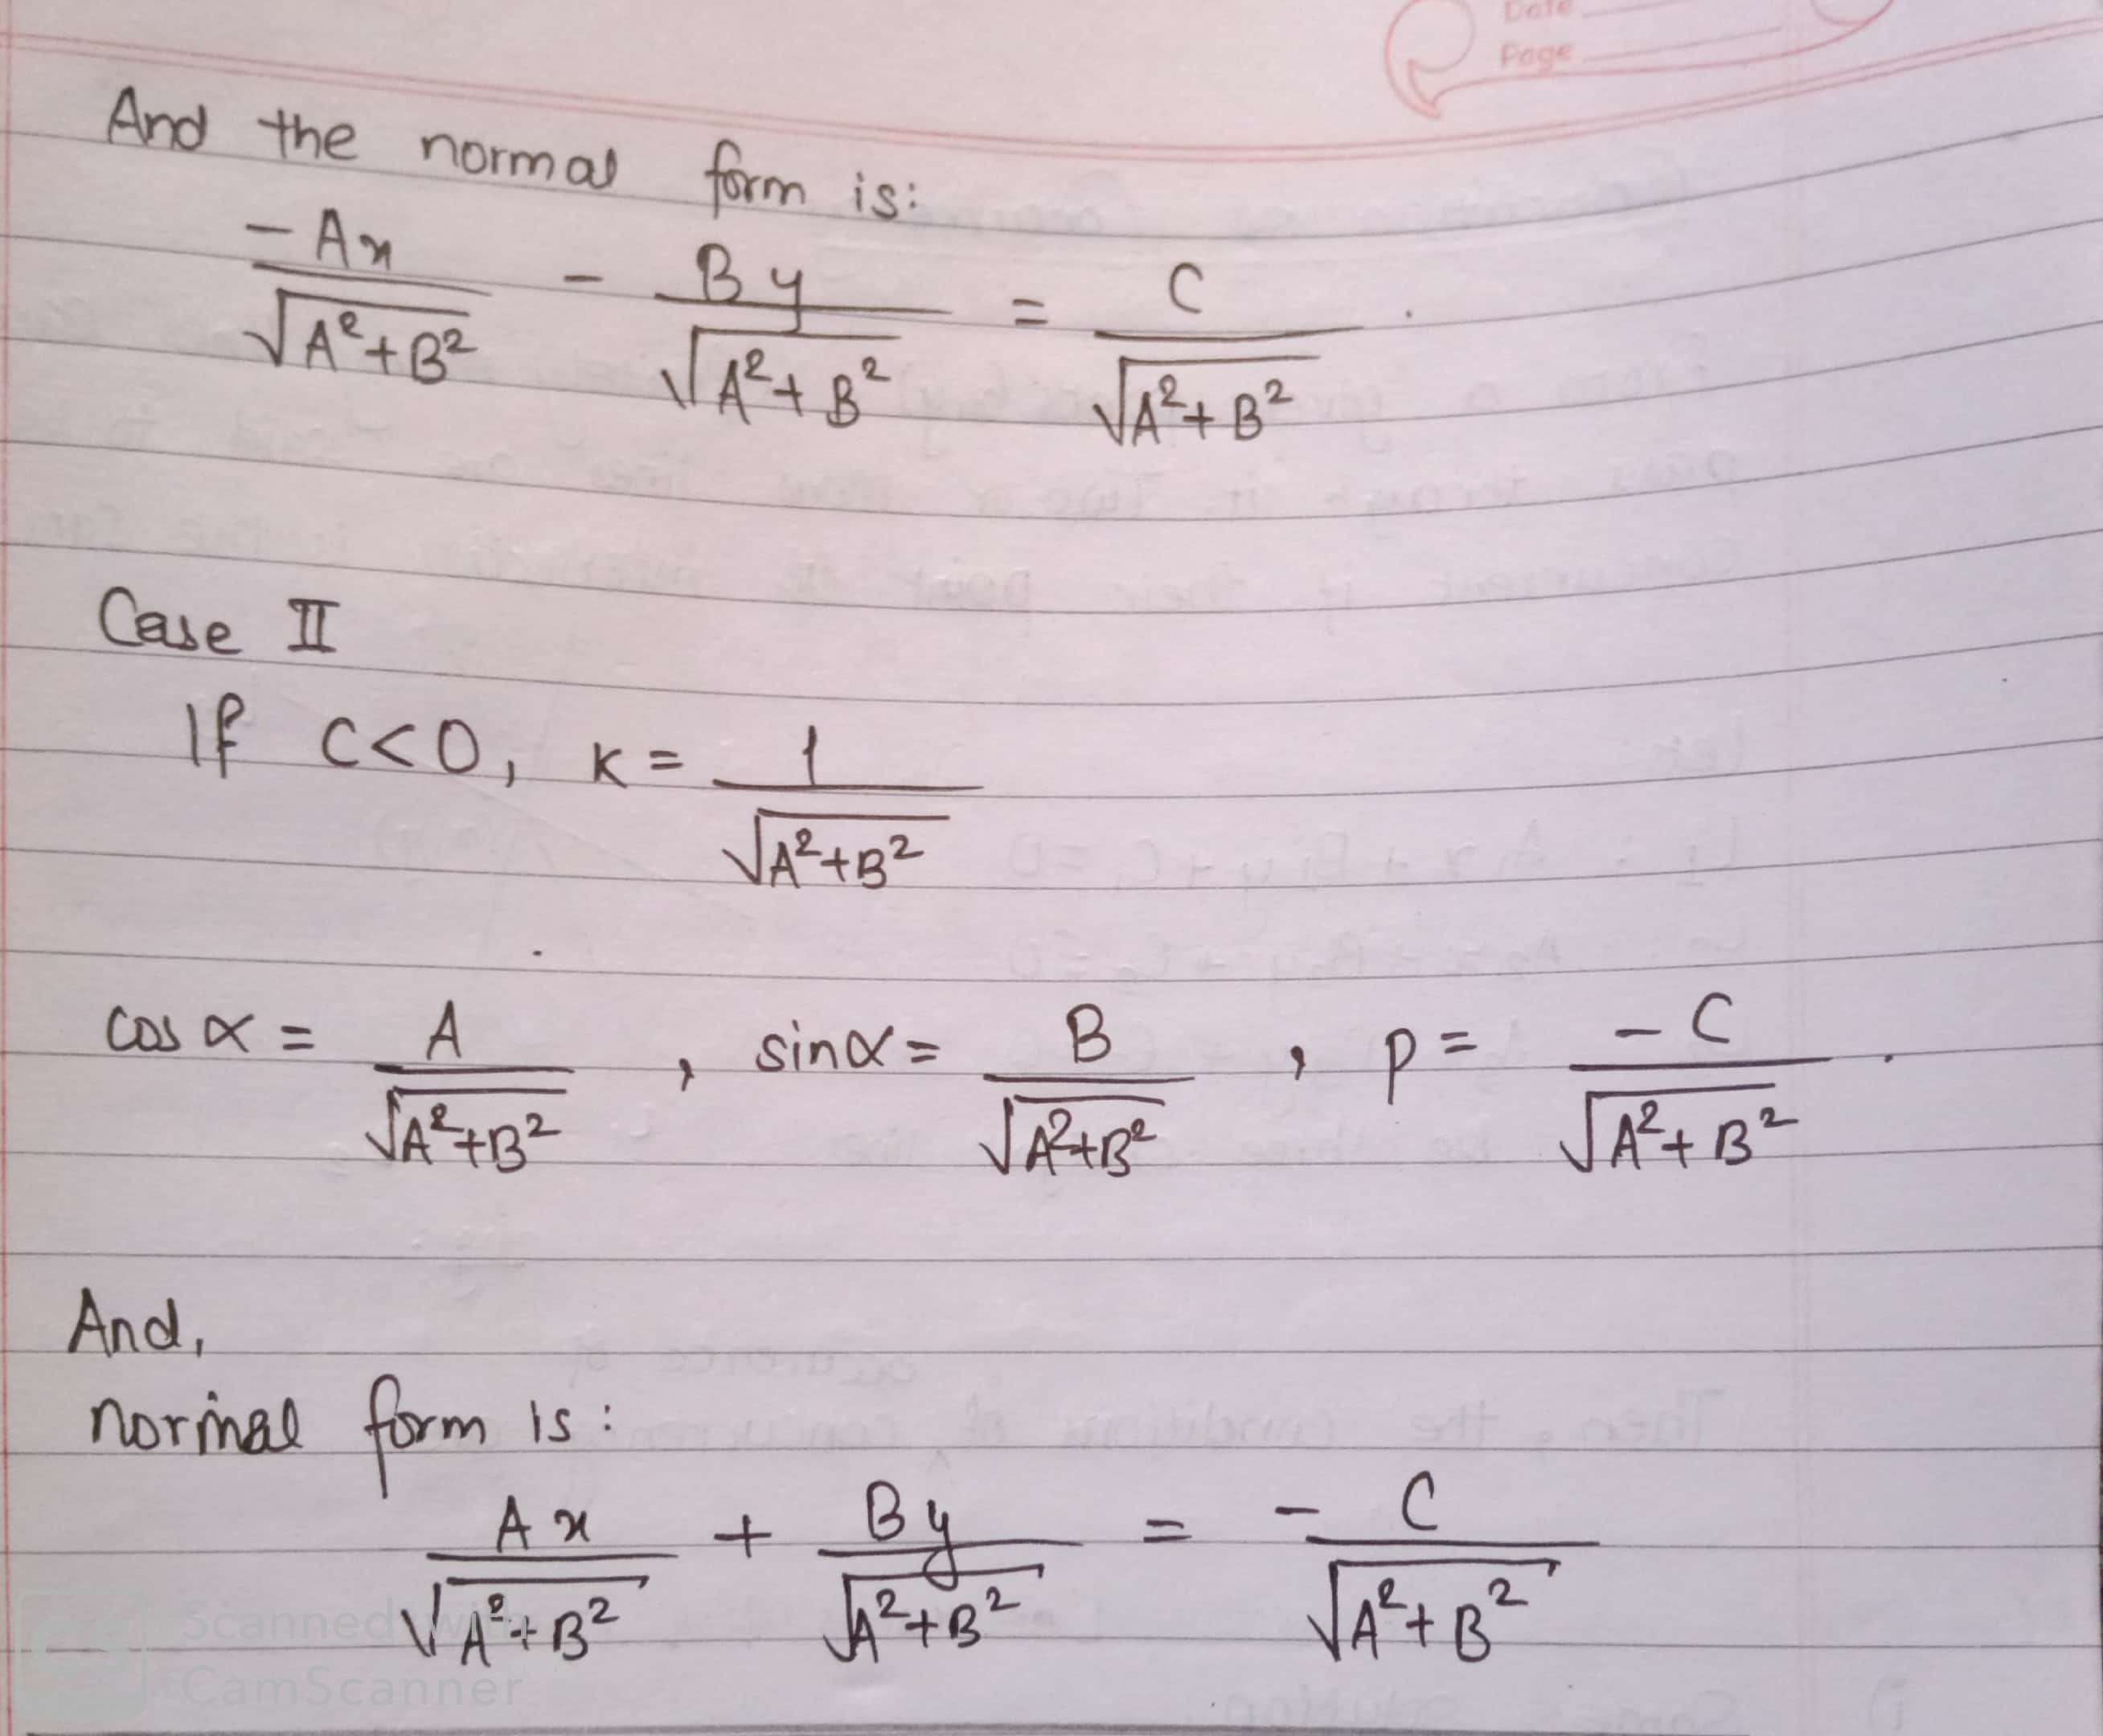 Date
Page
And the normal form is:
-Ax/√(A²+B²) - By/√(A²+B²) = C/√(A²+B²).
Case II
If C<0, K = 1/√(A²+B²)
cos α = A/√(A²+B²), sin α = B/√(A²+B²), p = -C/√(A²+B²).
And,
normal form is:
Ax/√(A²+B²) + By/√(A²+B²) = -C/√(A²+B²)
Scanned with
CamScanner